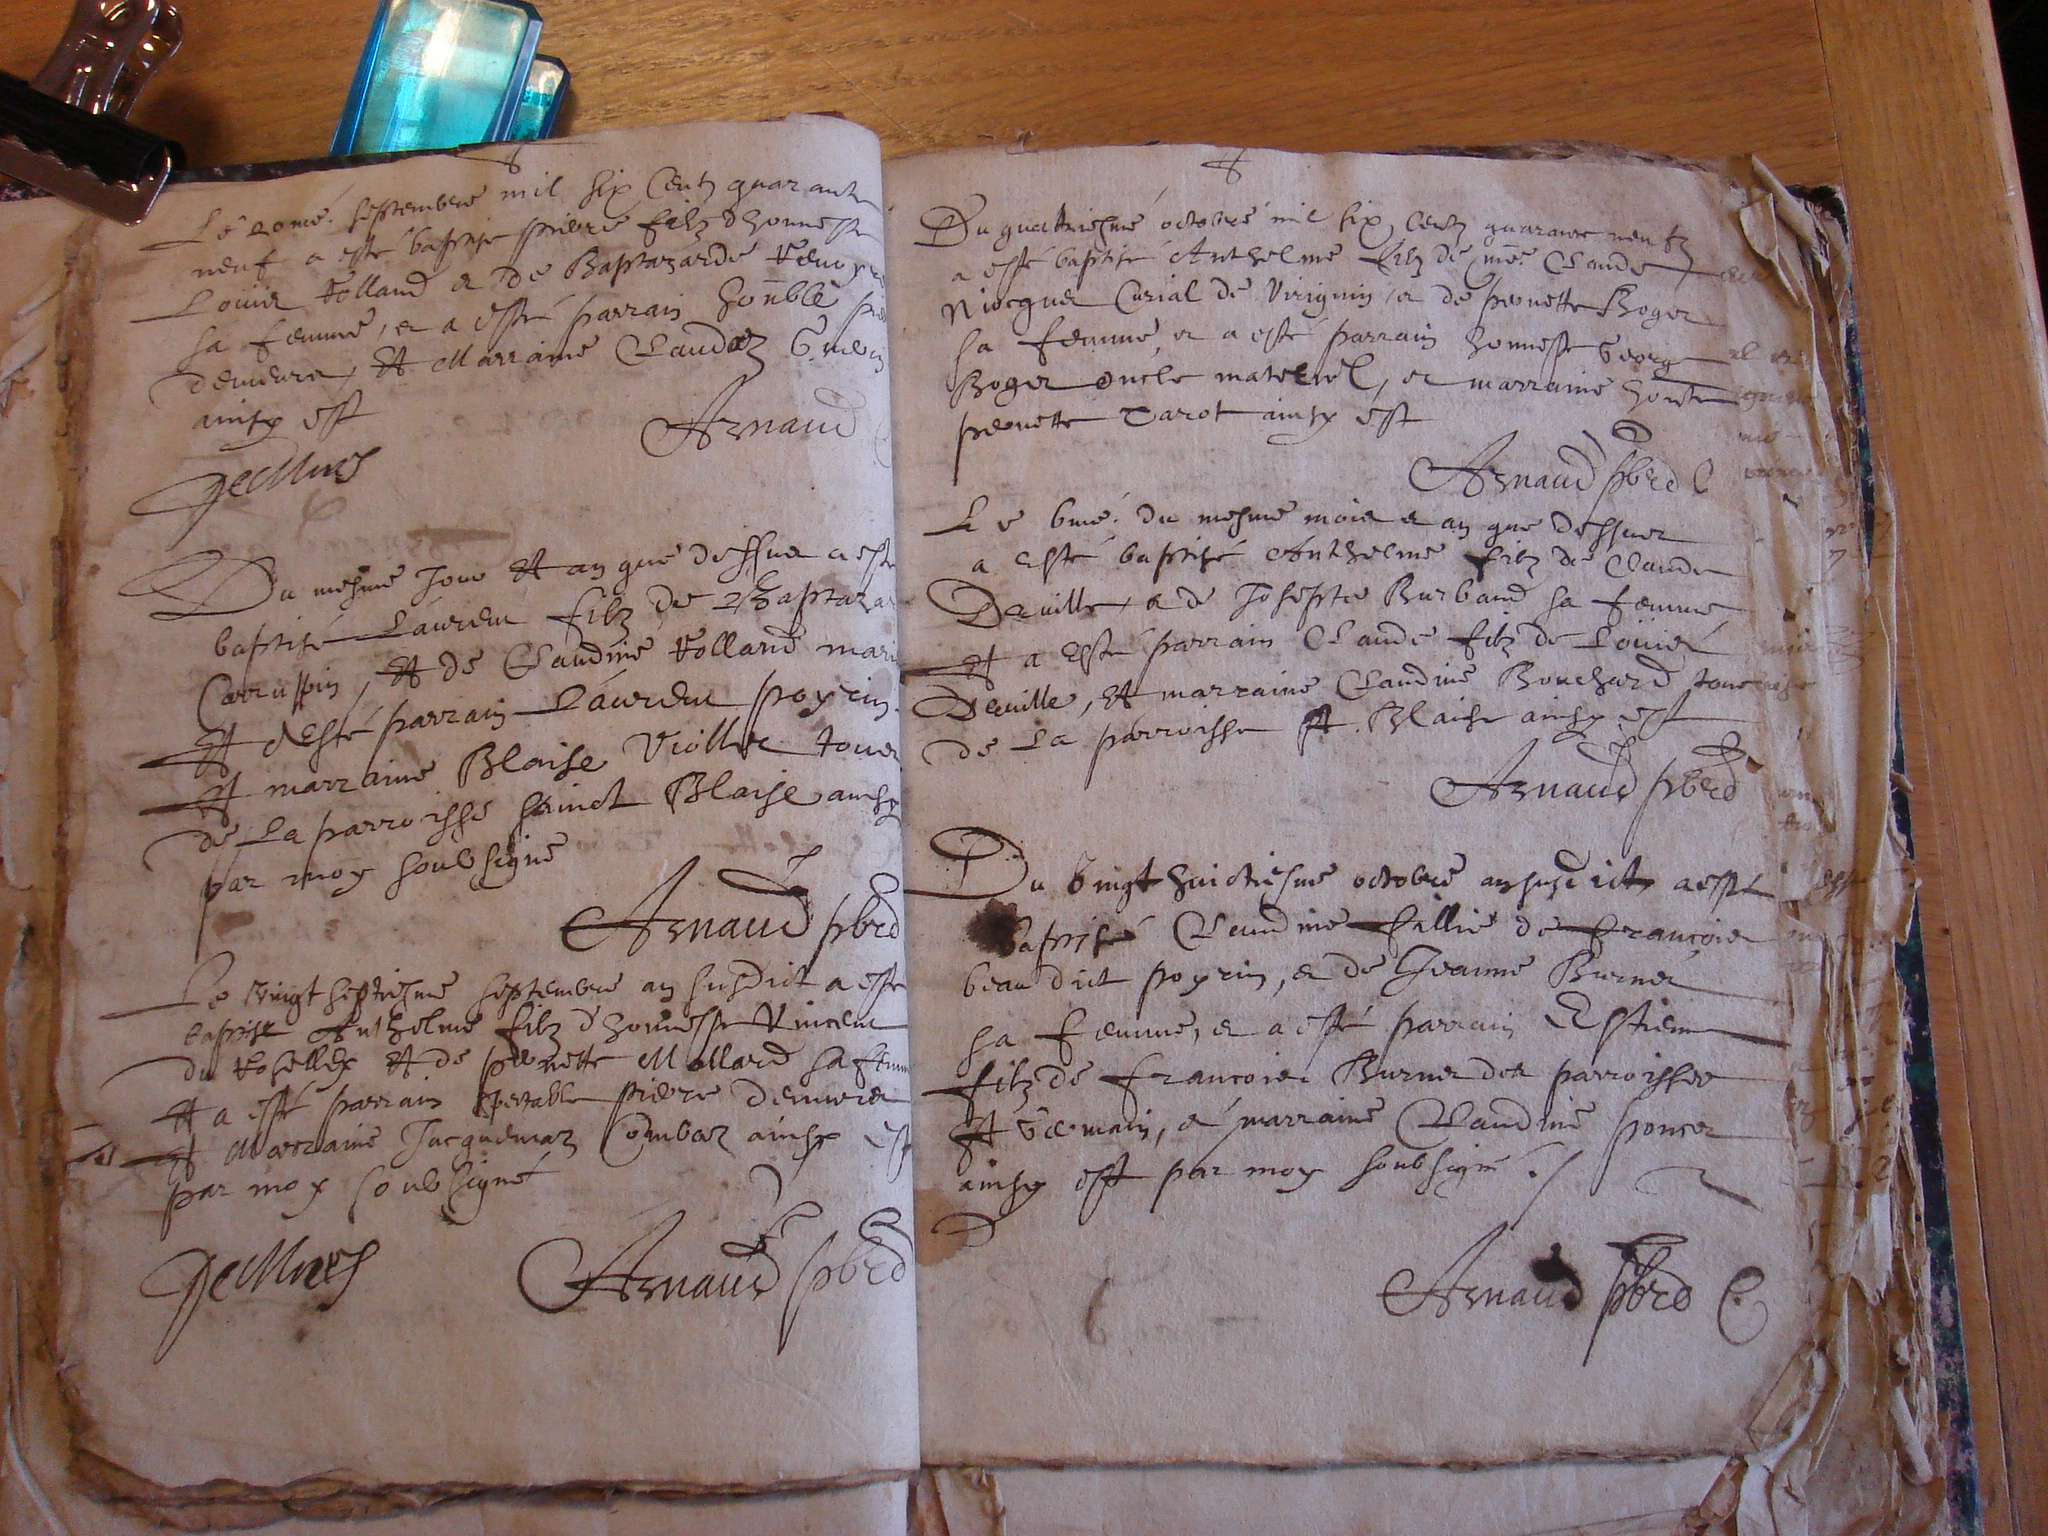 septembre mil six centz quarante
neuf a esté baptisé pierre filz d'honneste
Louis Volland et de Baptazarde
sa femme, et a esté parrain honnble
demeure, et Marraine Claudaz
ainsy est
Arnaud
Du mesme Jour et an que dessus a esté
baptisé Laurent filz de Baptaza
Carrussin, et de Claudine Volland mari
et a esté parrain Laurent poyrin
et marraine Blaise Viollet tous
de La parroisse sainct Blaise ainsy
par moy soubsigné
Arnaud pbre
Le vingt septiesme septembre an susdict a esté
baptisé Anthelme filz d'honneste Vincent
du et de pernette Mollard sa femme
et a esté parrain spectable pierre
et Marraine Jacquemaz Combaz ainsy est
par moy soubsigné
Arnaud pbre
Du quattriesme octobre mil six centz quarante neufz
a esté baptisé Anthelme filz de me Claude
Niocque Curial de Virignin, et de pernette Roger
sa femme, et a esté parrain honneste George
Roger oncle maternel, et marraine honeste
pernette Carot ainsy est
Arnaud pbre
Le 6me du mesme mois et an que dessus
a esté baptisé Anthelme filz de Claude
Deville, et de Josepte Burband sa femme,
et a esté parrain Claude filz de Louis
Deville, et marraine Claudine Bouchard tous
de La parroisse St Blaise ainsy est
Arnaud pbre
Du vingt huictiesme octobre an susdict a esté
baptisé Claudine fillie de francois
beau dict poyrin, et de Jeanne Burnet
sa femme, et a esté parrain Estienne
filz de francois Burnet des parroisses
St Germain, et marraine Claudine poncet
ainsy est par moy soubsigné
Arnaud pbre